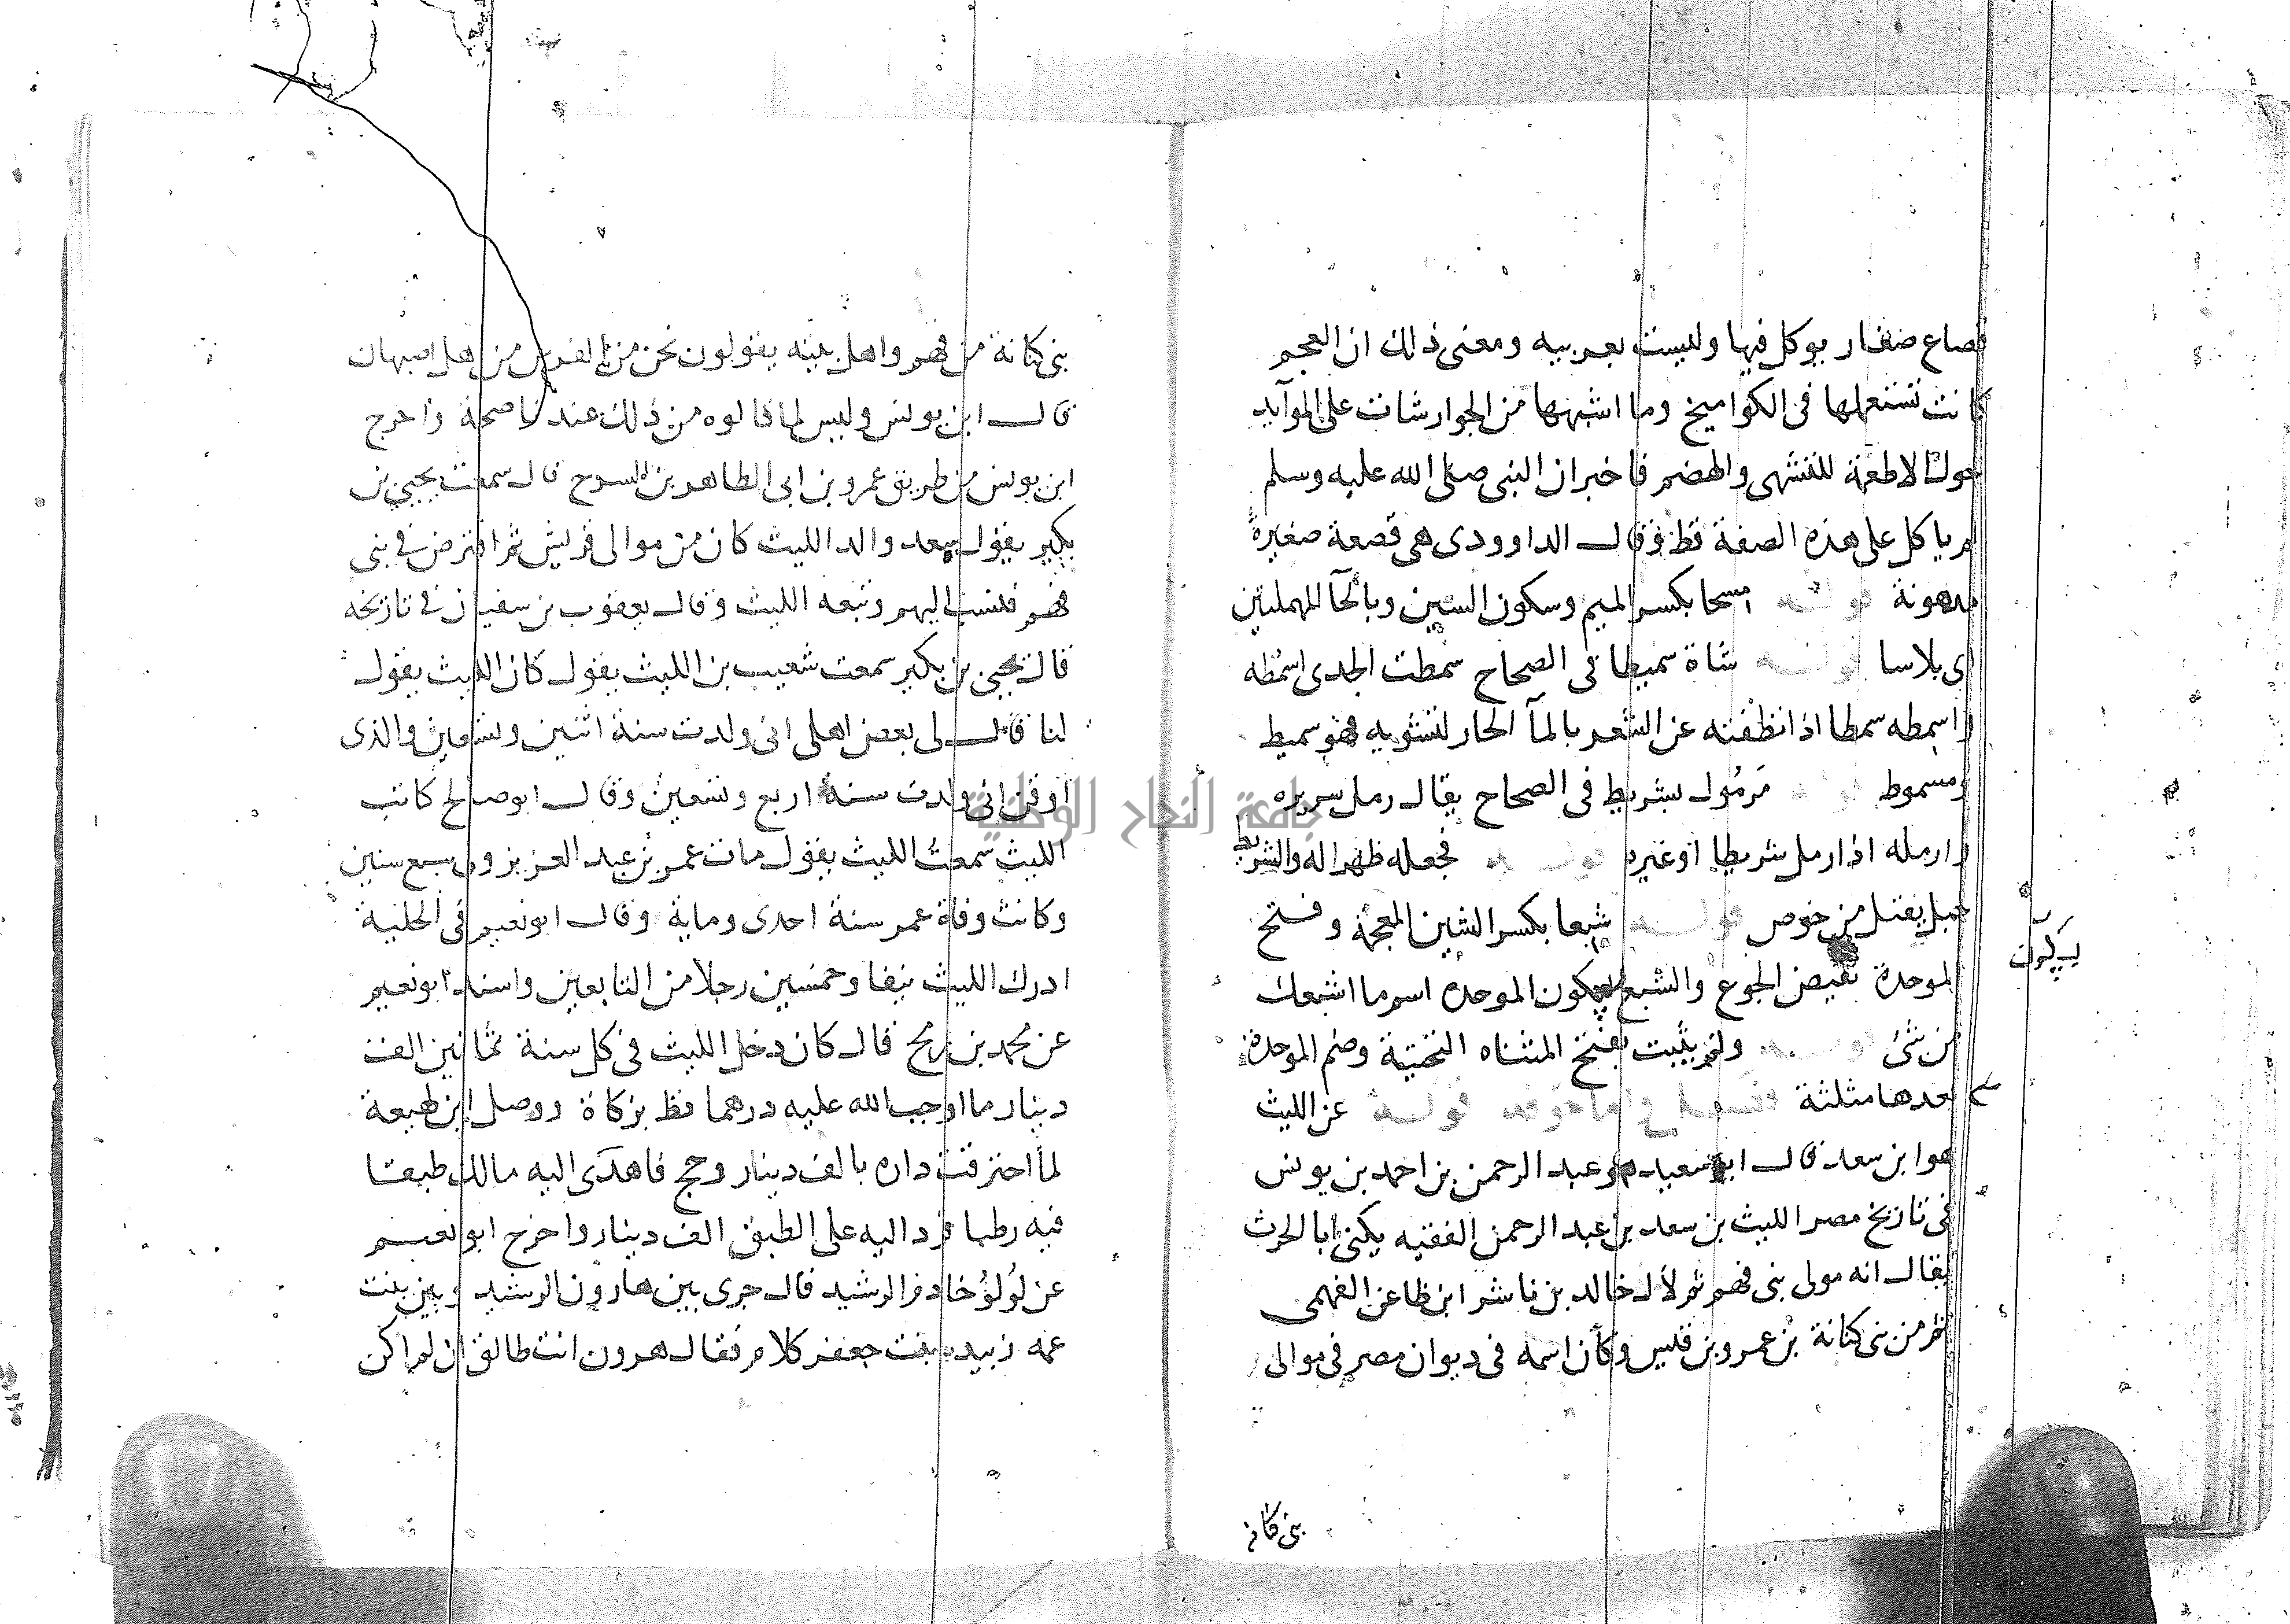 قصاع صغار يوكل فيها وليست بعربيه ومعنى ذلك ان العجم
كانت تستعملها فى الكواميخ وما اشبهها من الجوارشات على الموآيد
حول الاطعمة للتشهى والهضم فاخبر ان النبى صلى الله عليه وسلم
لم ياكل على هذه الصفة قط وقال الداوودى هى قصعة صغيرة
مدهونة قوله مسحا بكسر الميم وسكون السين وبالحآ المهملتين
اى بلاسا قوله شاة سميطا فى الصحاح سمطت الجدى اسمطه
واسمطه سمطا اذا نظفته عن الشعر بالمآ الحار لتشويه فهو سميط
ومسموط قوله مرمُول بشريط فى الصحاح يقال رمل سريره
وارمله اذا رمل شريطا او غيره قوله فجعله ظهرا له والشريط
حبل يفتل من خوص قوله شبعا بكسر الشين المعجمة وفتح
الموحدة نقيض الجوع والشبع بسكون الموحدة اسم ما اشبعك
من شئ قوله ولم يلبث بفتح المثناه التحتية وضم الموحدة
بعدها مثلثة قوله عن الليث
هو ابن سعد قال ابو سعيد عبد الرحمن بن احمد بن يونس
فى تاريخ مصر الليث بن سعد بن عبد الرحمن الفقيه يكنى ابا الحرث
يقال انه مولى بنى فهم ثم لال خالد بن ناشر ابن ظاعن الفهمى
ثم من بنى كنانة بن عمرو بن قيس وكان اسمه فى ديوان مصر فى موالى
بنى كنانه
بنى كنانة من فهم واهل بيته يقولون نحن من الفرس من اهل اصبهان
قال ابن يونس وليس لما قالوه من ذلك عندنا صحة واخرج
ابن يونس من طريق عمرو بن ابى الطاهر بن السرح قال سمعت يحيى بن
بكير يقول سعد والد الليث كان من موالى قريش ثم افترض فى بنى
فهم فنسب اليهم وتبعه الليث وقال يعقوب بن سفيان فى تاريخه
قال يحيى بن بكير سمعت شعيب بن الليث يقول كان الليث يقول
لنا قال لى بعض اهلى انى ولدت سنة اثنين وتسعين والذى
اوقن انى ولدت سنة اربع وتسعين وقال ابو صالح كاتب
الليث سمعت الليث يقول مات عمر بن عبد العزيز ولى سبع سنين
وكانت وفاة عمر سنة احدى وماية وقال ابو نعيم فى الحلية
ادرك الليث نيفا وخمسين رجلا من التابعين واسند ابو نعيم
عن محمد بن رمح قال كان دخل الليث فى كل سنة ثمانين الف
دينار ما اوجب الله عليه درهما قط بزكاة ووصل ابن لهيعة
لما احترقت داره بالف دينار وحج فاهدى اليه مالك طبقا
فيه رطبا فرد اليه على الطبق الف دينار واخرج ابو نعيم
عن لولؤ خادم الرشيد قال جرى بين هارون الرشيد وبين بنت
عمه زبيده بنت جعفر كلام فقال هرون انت طالق ان لم اكن
جامعة النجاح الوطنية